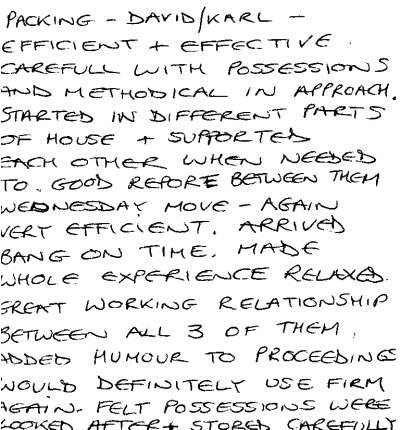 PACKING - DAVID/KARL -
EFFICIENT + EFFECTIVE.
CAREFULL WITH POSSESSIONS
AND METHODICAL IN APPROACH.
STARTED IN DIFFERENT PARTS
OF HOUSE + SUPPORTED
EACH OTHER WHEN NEEDED
TO. GOOD REPORE BETWEEN THEM
WEDNESDAY MOVE - AGAIN
VERY EFFICIENT. ARRIVED
BANG ON TIME. MADE
WHOLE EXPERIENCE RELAXED.
GREAT WORKING RELATIONSHIP
BETWEEN ALL 3 OF THEM.
ADDED HUMOUR TO PROCEEDINGS
WOULD DEFINITELY USE FIRM
AGAIN - FELT POSSESSIONS WERE
LOOKED AFTER + STORED CAREFULLY